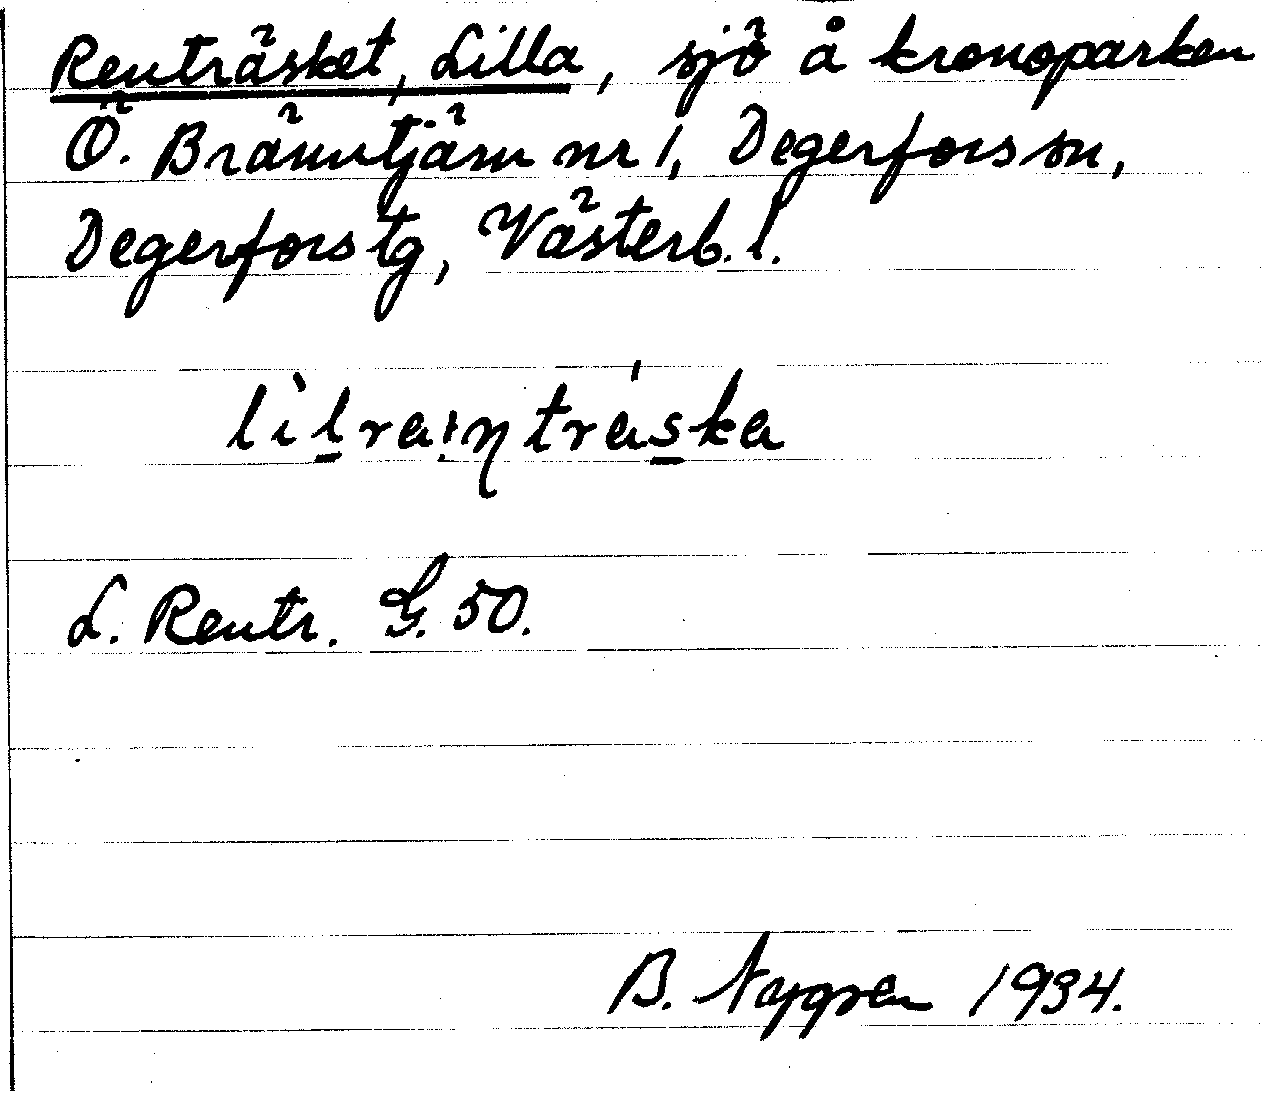 Renträsket, Lilla, sjö å kronoparken
Ö. Bränntjärn nr 1, Degerfors sn,
Degerfors tg, Västerb. l.
L. Rentr. G. 50.
B. Nygren 1934.